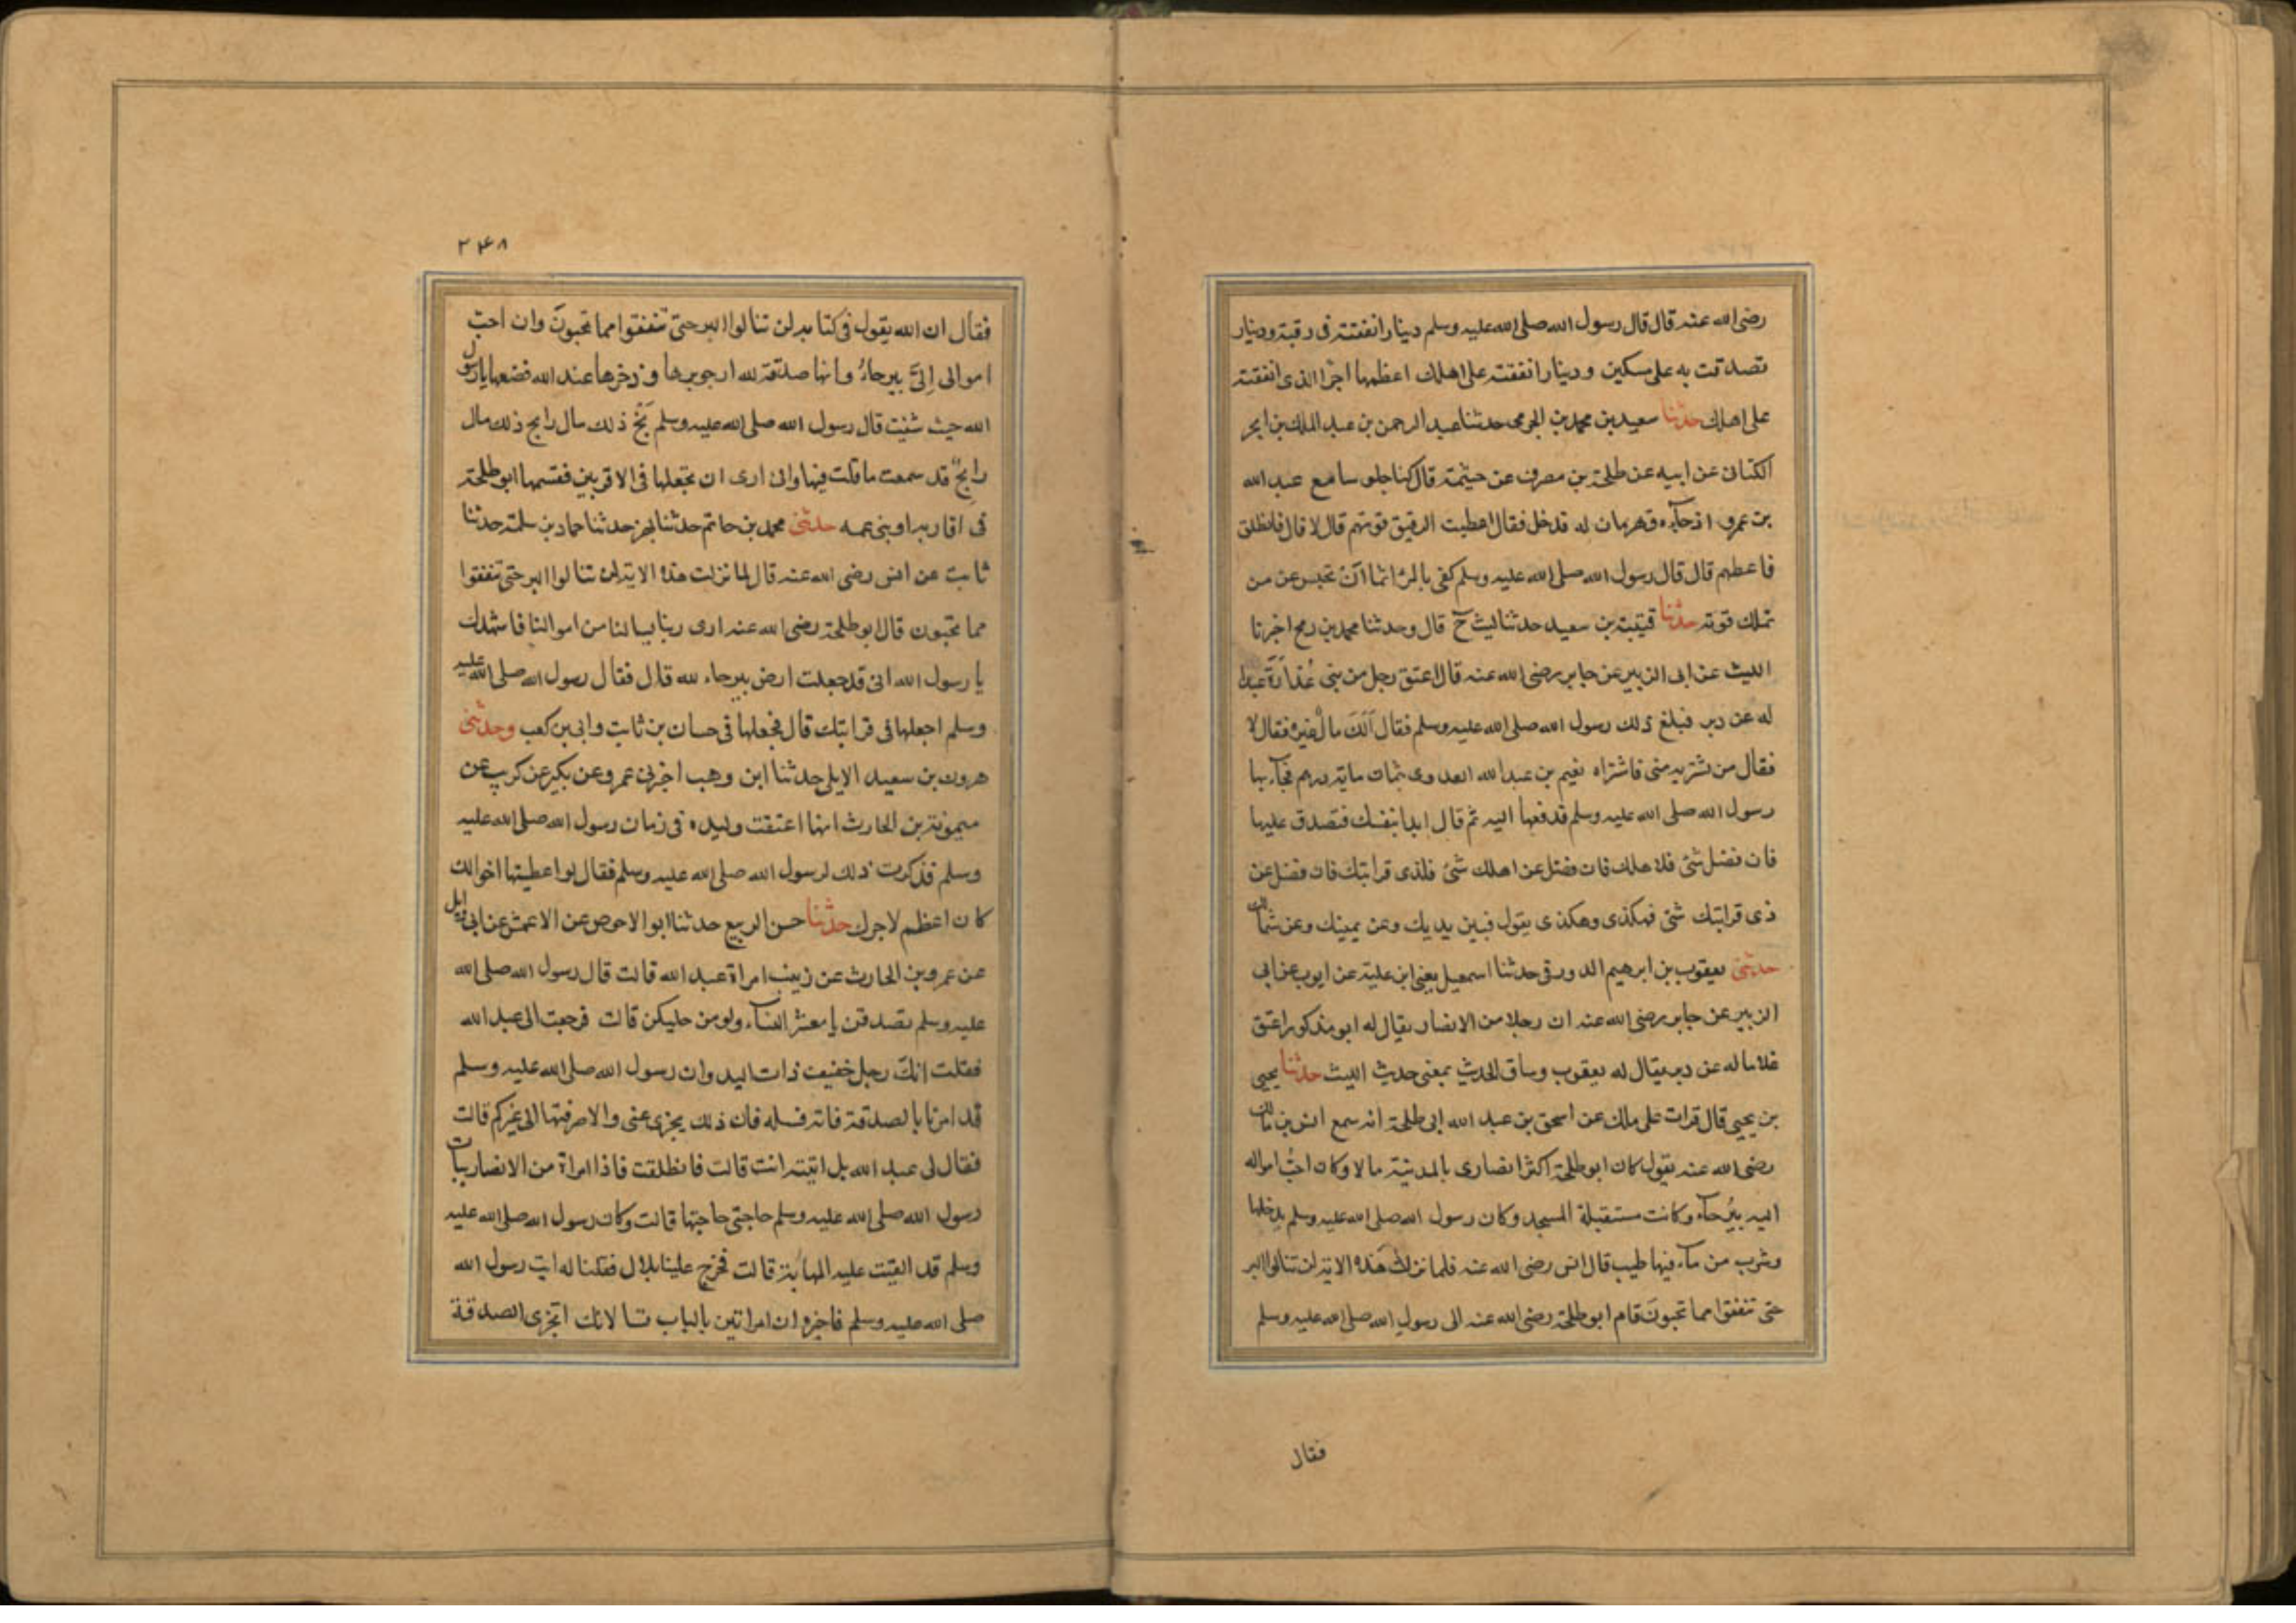 رضى الله عنه قال قال رسول الله صلى الله عليه وسلم دينار انفقته فى رقبة ودينار
تصدقت به على مسكين ودينار انفقته على اهلك اعظمها اجرا الذى انفقته
على اهلك حدثنا سعيد بن محمد بن الجرمى حدثنا عبد الرحمن بن عبد الملك بن ابجر
الكنانى عن ابيه عن طلحة بن مصرف عن حيثمة قال كنا جلوسا مع عبد الله
بن عمرو اذ جآءه قهرمان له قد خل فقال اعطيت الرقيق قوتهم قال لا قال فانطلق
فاعطهم قال قال رسول الله صلى الله عليه وسلم كفى بالمرء اثما ان تحبس عن من
تملك قوته حدثنا قتيبة بن سعيد حدثنا ليث ح قال وحدثنا محمد بن رمح اخبرنا
الليث عن ابى الزبير عن جابر رضى الله عنه قال اعتق رجل من بنى عُذرَةَ عبدا
له عن دبر فبلغ ذلك رسول الله صلى الله عليه وسلم فقال اَلَكَ مال غيره فقال لا
فقال من يشتريه منى فاشتراه نعيم بن عبد الله العدوى بثمان ماية درهم فجآء بها
رسول الله صلى الله عليه وسلم فدفعها اليه ثم قال ابدا بنفسك فتصدق عليها
فان فضل شئ فلاهلك فان فضل عن اهلك شئ فلذى قرابتك فان فضل عن
ذى قرابتك شئ فهكذى وهكذى يقول فبين يديك وعن يمينك وعن شمالك
حدثنى يعقوب بن ابرهيم الدورقى حدثنا اسمعيل يعنى ابن علية عن ايوب عن ابى
الزبير عن جابر رضى الله عنه ان رجلا من الانصار يقال له ابو مذكور اعتق
غلاما له عن دبر يقال له يعقوب وساق الحديث بمعنى حديث الليث حدثنا يحيى
بن يحيى قال قرات على ملك عن اسحق بن عبد الله ابى طلحة انه سمع انس بن مالك
رضى الله عنه يقول كان ابو طلحة اكثر انصارى بالمدينة مالا وكان احبُّ امواله
اليه بيُرحآء وكانت مستقبلة المسجد وكان رسول الله صلى الله عليه وسلم يدخلها
وشرب من مآء فيها طيب قال انس رضى الله عنه فلما نزلت هذه الاية لن تنالوا البر
حتى تنفقوا مما تحبون قام ابو طلحة رضى الله عنه الى رسول الله صلى الله عليه وسلم
فقال
٢٤٨
فقال ان الله يقول فى كتابه لن تنالوا البر حتى تنفقوا مما تحبون وان احبّ
اموالى اِلىَّ بيرحاءُ وانها صدقة لله ارجو برها وذخرها عند الله فضعها يا رسول
الله حيث شئت قال رسول الله صلى الله عليه وسلم بَخْ ذلك مال رابح ذلك مال
رابح قد سمعت ما قلت فيها وانى ارى ان تجعلها فى الاقربين فقسمها ابو طلحة
فى اقاربه وبنى عمه حدثنى محمد بن حاتم حدثنا بهز حدثنا حماد بن سلمة حدثنا
ثابت عن انس رضى الله عنه قال لما نزلت هذه الاية لن تنالوا البر حتى تنفقوا
مما تحبون قال ابو طلحة رضى الله عنه ارى ربنا يسالنا من اموالنا فاشهدك
يا رسول الله انى قد جعلت ارض بيرحاء لله قال فقال رسول الله صلى الله عليه
وسلم اجعلها فى قرابتك قال فجعلها فى حسان بن ثابت وابى بن كعب وحدثنى
هرون بن سعيد الايلى حدثنا ابن وهب اخبرنى عمرو عن بكير عن كريب عن
ميمونة بن الحارث انها اعتقت وليده فى زمان رسول الله صلى الله عليه
وسلم فذكرت ذلك لرسول الله صلى الله عليه وسلم فقال لو اعطيتها اخوالك
كان اعظم لاجرك حدثنا حسن الربيع حدثنا ابو الاحوص عن الاعمش عن ابى وايل
عن عمرو بن الحارث عن زينب امراة عبد الله قالت قال رسول الله صلى الله
عليه وسلم تصدقن يا معشر النسآء ولو من حليكن قالت فرجعت الى عبد الله
فقلت انكَ رجل خفيف ذات اليد وان رسول الله صلى الله عليه وسلم
قد امرنا بالصدقة فاته فسله فان ذلك يجزى عنى والا صرفتها الى غيركم قالت
فقال لى عبد الله بل ائتيه انت قالت فانطلقت فاذا امراة من الانصار بباب
رسول الله صلى الله عليه وسلم حاجتى حاجتها قالت وكان رسول الله صلى الله عليه
وسلم قد القيت عليه المهابة قالت فخرج علينا بلال فقلنا له ايت رسول الله
صلى الله عليه وسلم فاخبره ان امراتين بالباب تسالانك اتجزى الصدقة